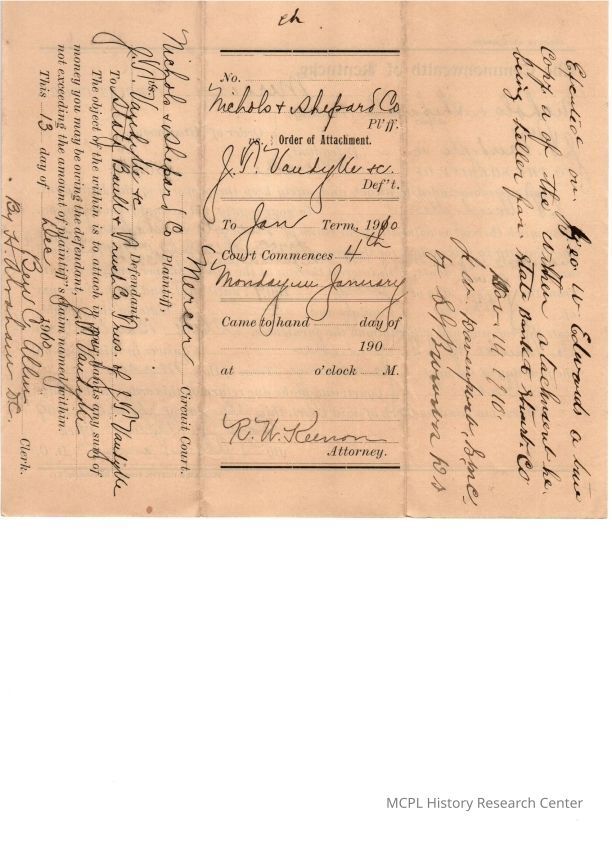 Mercer Circuit Court.
Nichols & Shepard Co Plaintiff,
vs.
J. V. Vandyke &c Defendant
To State Bank & Trust Co
The object of the within is to attach in your hands any sum of
money you may be owing the defendant, J. V. Vandyke
not exceeding the amount of plaintiff's claim named within.
This 13 day of Dec 1910
Ben C. Allen Clerk.
By H. D.C.
No.
Nichols & Shepard Co
Pl'ff.
vs. Order of Attachment.
J. V. Vandyke &c.
Def't.
To Jan Term, 1910
Court Commences 4th
Monday in January
Came to hand day of
190
at o'clock M.
R. W. Keenon
Attorney.
Executed on Geo W Edwards a true
Copy of the within attachment he
being Teller for State Bank & Trust Co
14 1910
Davenport, S.M.C.
by D S
MCPL History Research Center